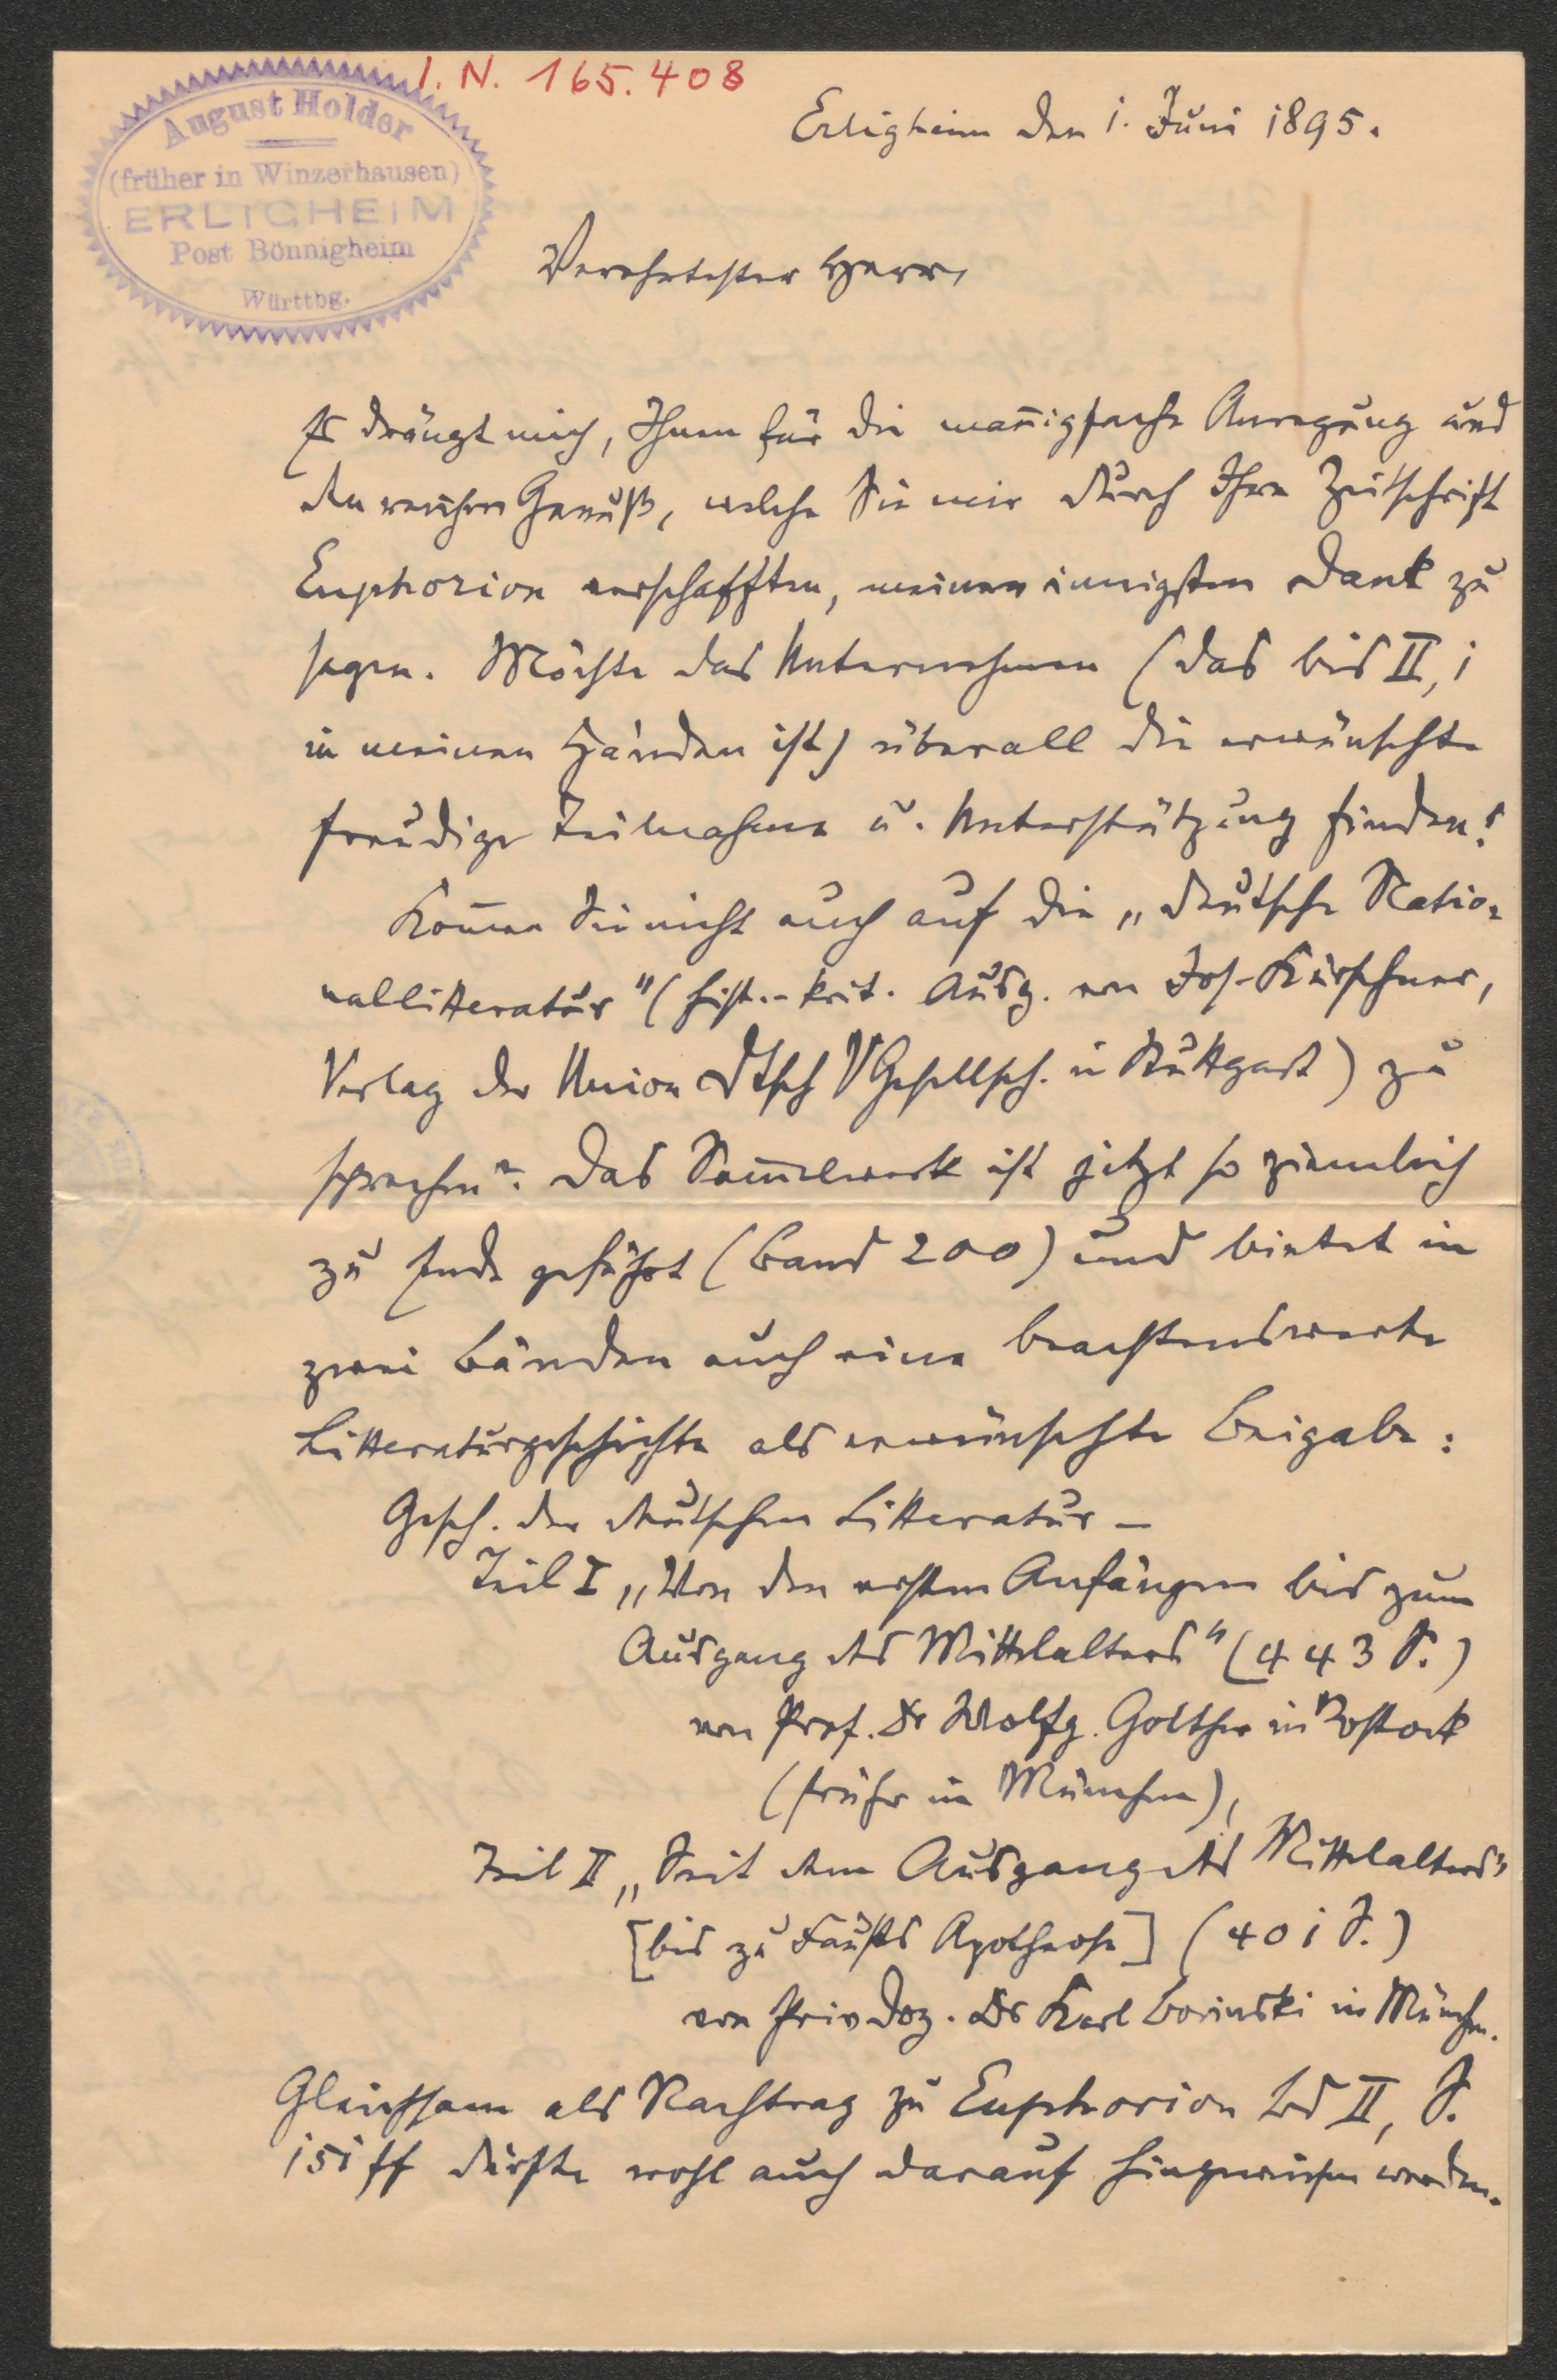 I. N. 165.408
August Holder
(früher in Winzerhausen)
ERLIGHEIM
Post Bönnigheim
Württbg.
Erligheim den 1. Juni 1895.
Verehrtester Herr,
Es drängt mich, Ihnen für die man̄igfache Anregung und
den reichen Genuß, welche Sie mir durch Ihre Zeitschrift
Euphorion verschafften, meinen innigsten Dank zu
sagen. Möchte das Unternehmen (das bis II, 1
in meinen Händen ist) überall die erwünschte
freudige Teilnahme u. Unterstützung finden!
Kom̄en Sie nicht auch auf die „Deutsche Natio-
nallitteratur" (hist.-krit. Ausg. von Jos. Kürschner,
Verlag der Union Dtsch VGesellsch. in Stuttgart) zu
sprechen? Das Sam̄elwerk ist jetzt so ziemlich
zu Ende geführt (Band 200) und bietet in
zwei Bänden auch eine beachtenswerte
Litteraturgeschichte als erwünschte Beigabe:
Gesch. der deutschen Litteratur –
Teil I „Von den ersten Anfängen bis zum
Ausgang des Mittelalters" (443 S.)
von Prof. Dr Wolfg. Golther in Rostock
(früher in München),
Teil II „Seit dem Ausgang des Mittelalters"
[bis zu Fausts Apotheose] (401 S.)
von PrivDoz. Dr Karl Borinski in München.
Gleichsam als Nachtrag zu Euphorion Bd II, S.
151 ff dürfte wohl auch darauf hingewiesen werden.